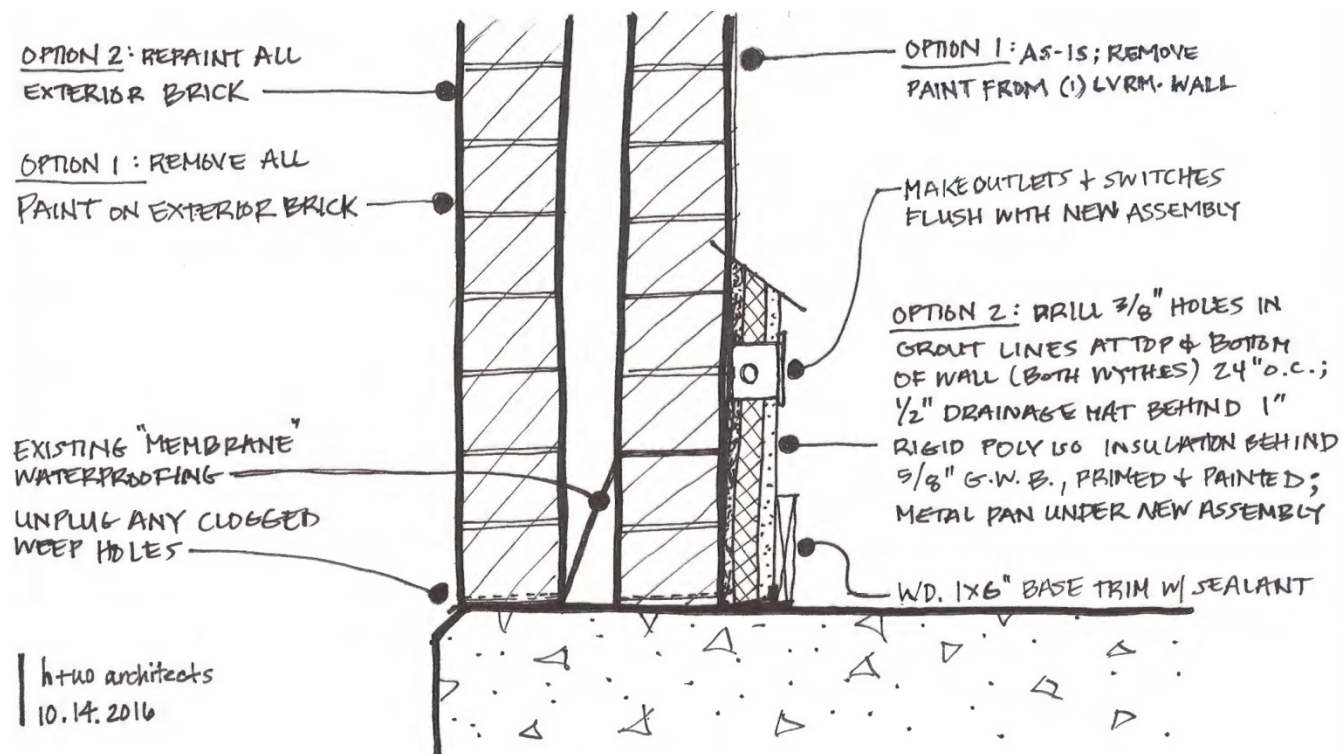 OPTION 2: REPAINT ALL
EXTERIOR BRICK
OPTION 1: REMOVE ALL
PAINT ON EXTERIOR BRICK
EXISTING "MEMBRANE"
WATERPROOFING
UNPLUG ANY CLOGGED
WEEP HOLES
h+uo architects
10.14.2016
OPTION 1: AS-IS; REMOVE
PAINT FROM (1) LVRM. WALL
MAKE OUTLETS + SWITCHES
FLUSH WITH NEW ASSEMBLY
OPTION 2: DRILL 3/8" HOLES IN
GROUT LINES AT TOP & BOTTOM
OF WALL (BOTH WYTHES) 24" O.C.;
1/2" DRAINAGE MAT BEHIND 1"
RIGID POLY ISO INSULATION BEHIND
5/8" G.W.B., PRIMED & PAINTED;
METAL PAN UNDER NEW ASSEMBLY
WD. 1X6" BASE TRIM W/ SEALANT